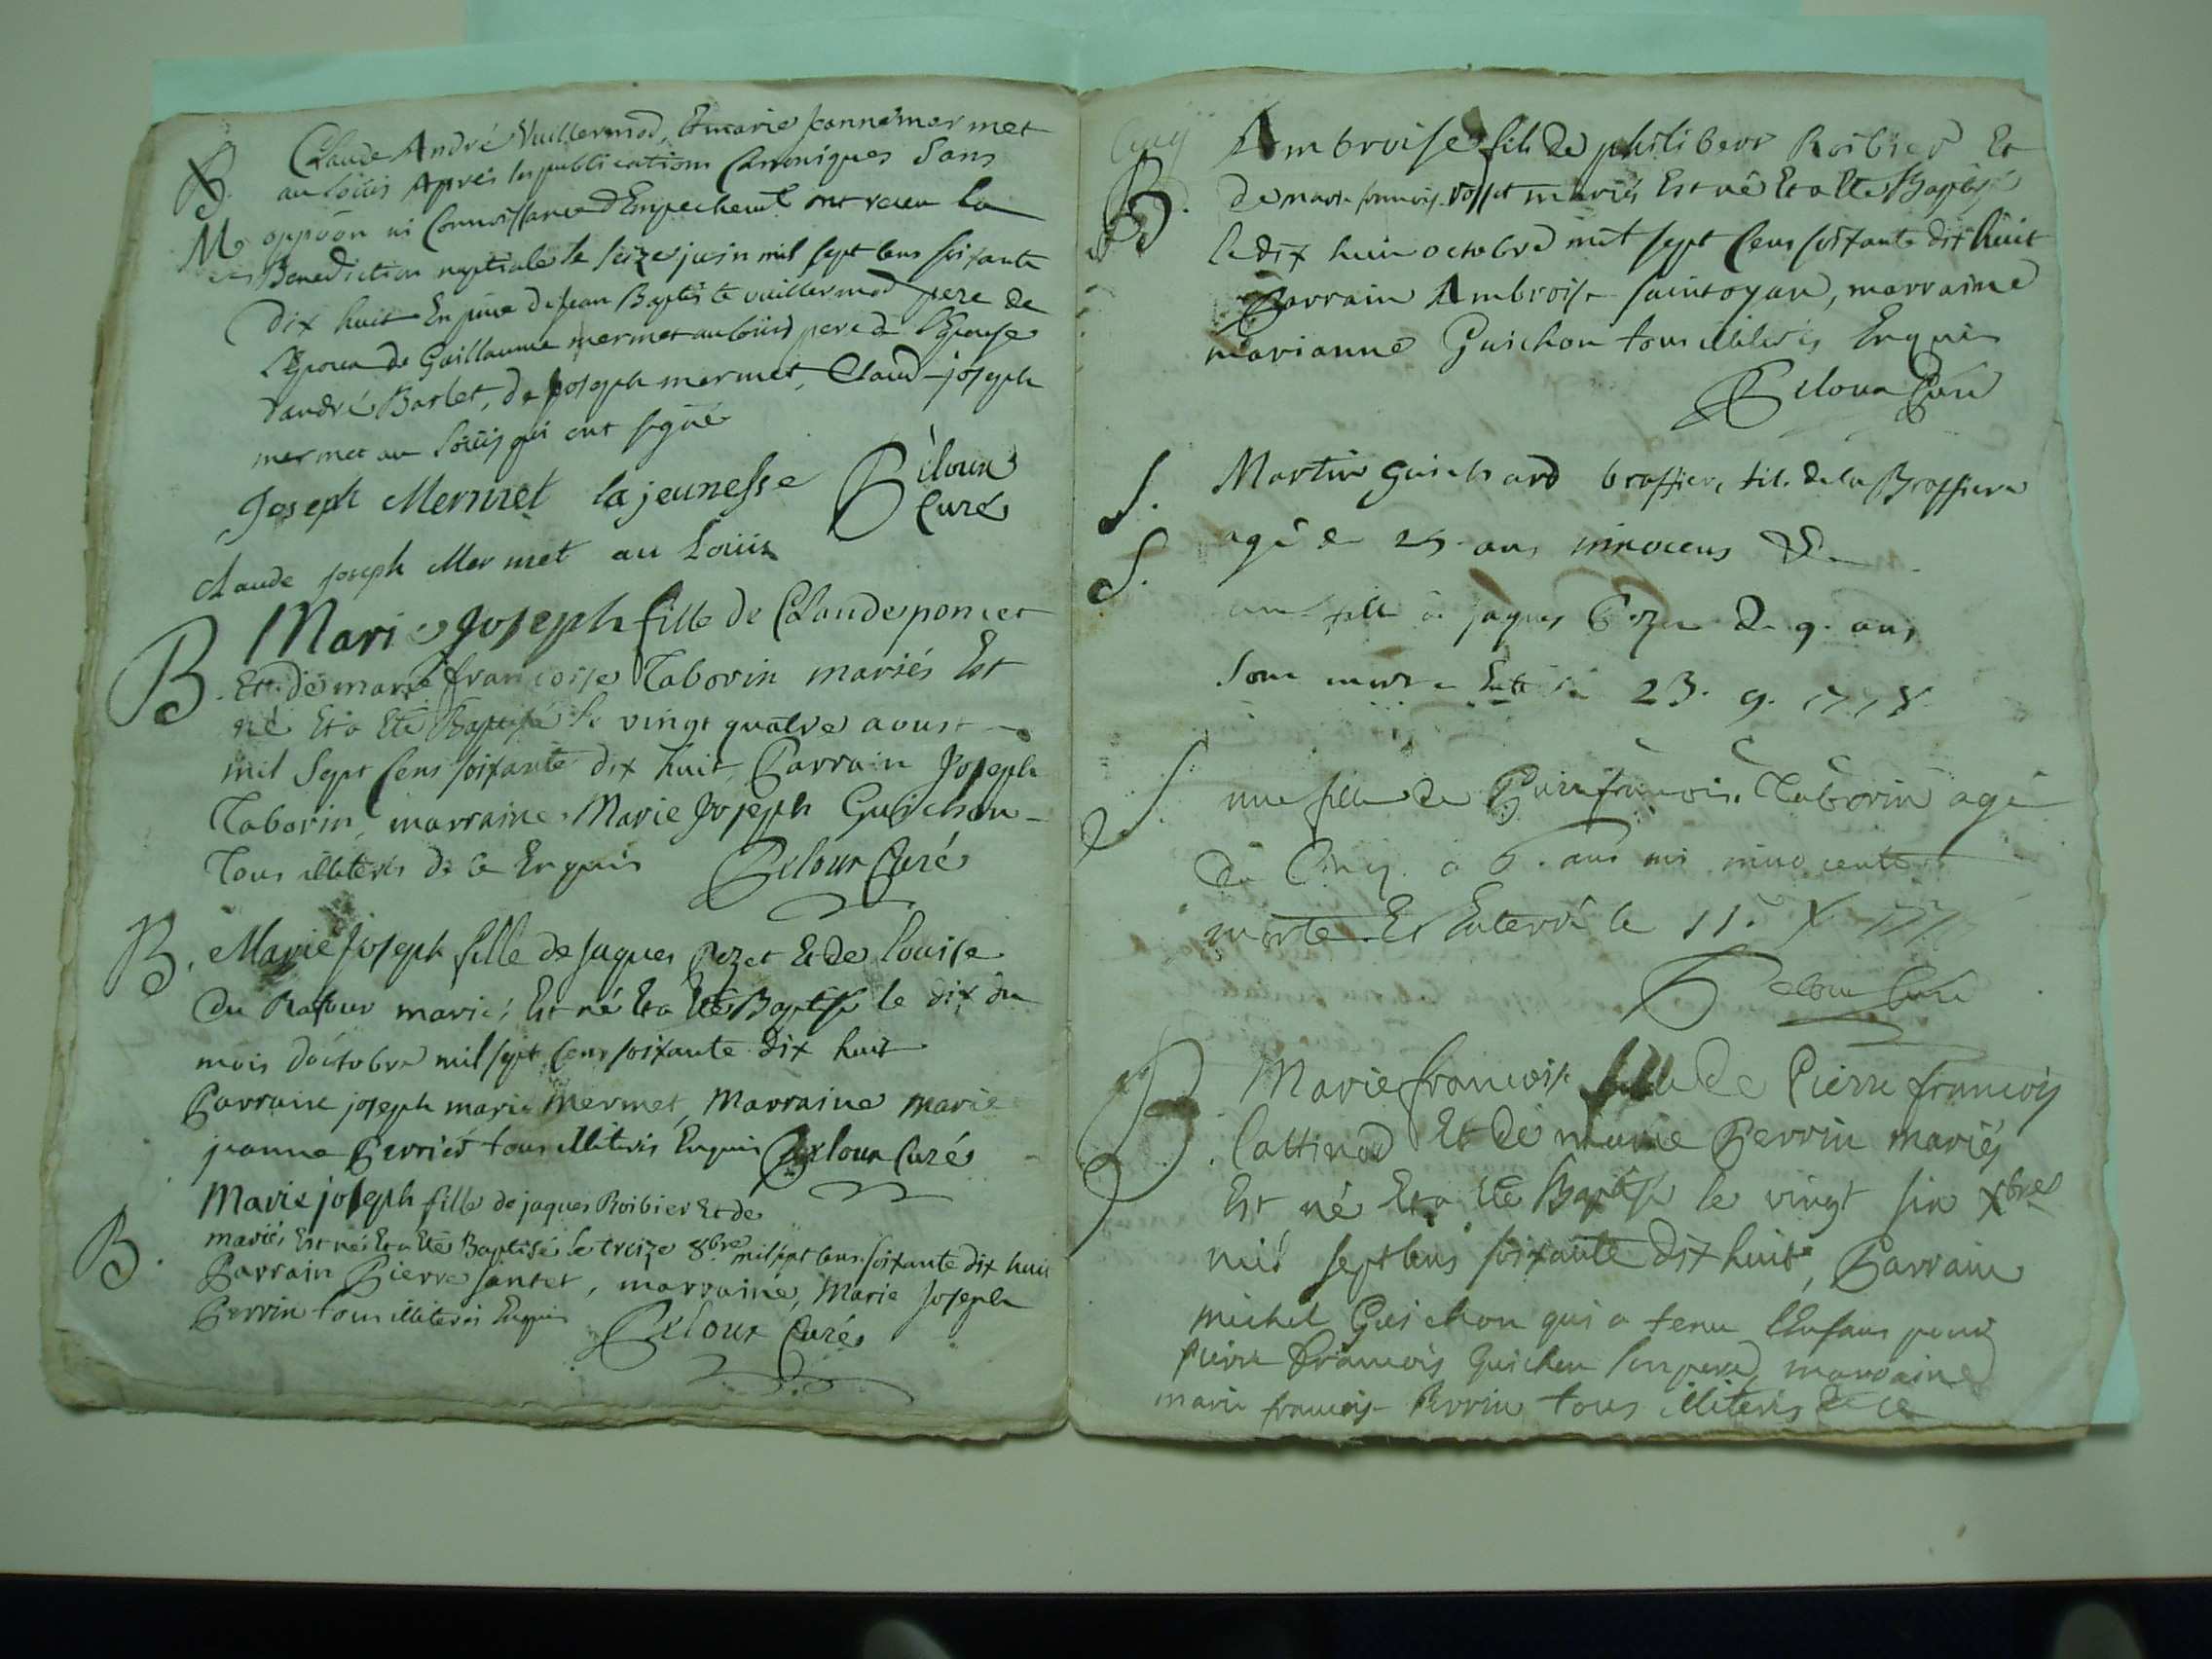 B. Claude André Vuillermod, Et marie Jeanne mermet
au Loüis Aprés les publications Canoniques Sans
M oppoon ni Connoissance d'Empechemt ont receu La
Benediction nuptiale le seize juin mil sept cens soixante
dix huit En pnce de Jean Baptiste vuillermod pere de
L'Epoux de Guillaume mermet au Loüis pere de L'Epouse
d'andré Barlet, de joseph mermet, Claud-joseph
mermet au Loüis qui ont signé
Joseph Mermet la jeunesse
Peloux
Curé
Claude Joseph Mermet au Loüis
B. Marie Joseph fille de Claude poncet
Et de marie francoise Taborin mariés Est
né Et a Eté Baptisé le vingt quatre aoust
mil Sept Cens soixante dix huit, Parrain Joseph
Taborin, marraine Marie Joseph Guichon
Tous illiterés de ce Enquis Peloux Curé
B. Marie Joseph fille de Jaques Pozet Et de Louise
Du Rafour mariés Est né Et a Eté Baptisé le dix du
mois d'octobre mil sept Cens soixante dix huit
Parrain joseph marie Mermet, Marraine marie
jeanne Perrier tous illiterés Enquis Peloux Curé
Marie joseph fille de jaques Roibier Et de
B. mariés Est né Et a Eté Baptisé le treize 8bre mil sept cens soixante dix huit
Parrain Pierre jantet, marraine, Marie Joseph
Perrin tous illiterés Enquis
Peloux Curé
Ambroise fils de philibert Roibier Et
B. de marie francois. rosset mariés Est né Et a Eté Baptisé
le dix huit octobre mil sept Cens soixante dix huit
Parrain Ambroise saintoyan, marraine
marianne Guichon tous illiterés Enquis
Peloux Curé
S. Martin Guichard brassier, fils de la Brassiere
agé de 25 ans innocens &
S. une fille à jaques Pozet de 9. ans
sont mort Enté le 23. 9. 1778.
S une fille de Pierre francois Taborin agé
de Cinq à 6. ans mi innocente
morte Et Enterré le 11. X 177
Peloux Curé
B. Marie francoise fille de Pierre francois
Lattinod Et de marie Perrin mariés
Est né Et a Eté Baptisé le vingt six Xbre
mil sept cens soixante dix huit, Parrain
michel Guichon qui a tenu L'Enfant pour
pierre francois Guichon son pere, marraine
marie francois Perrin tous illiterés de ce